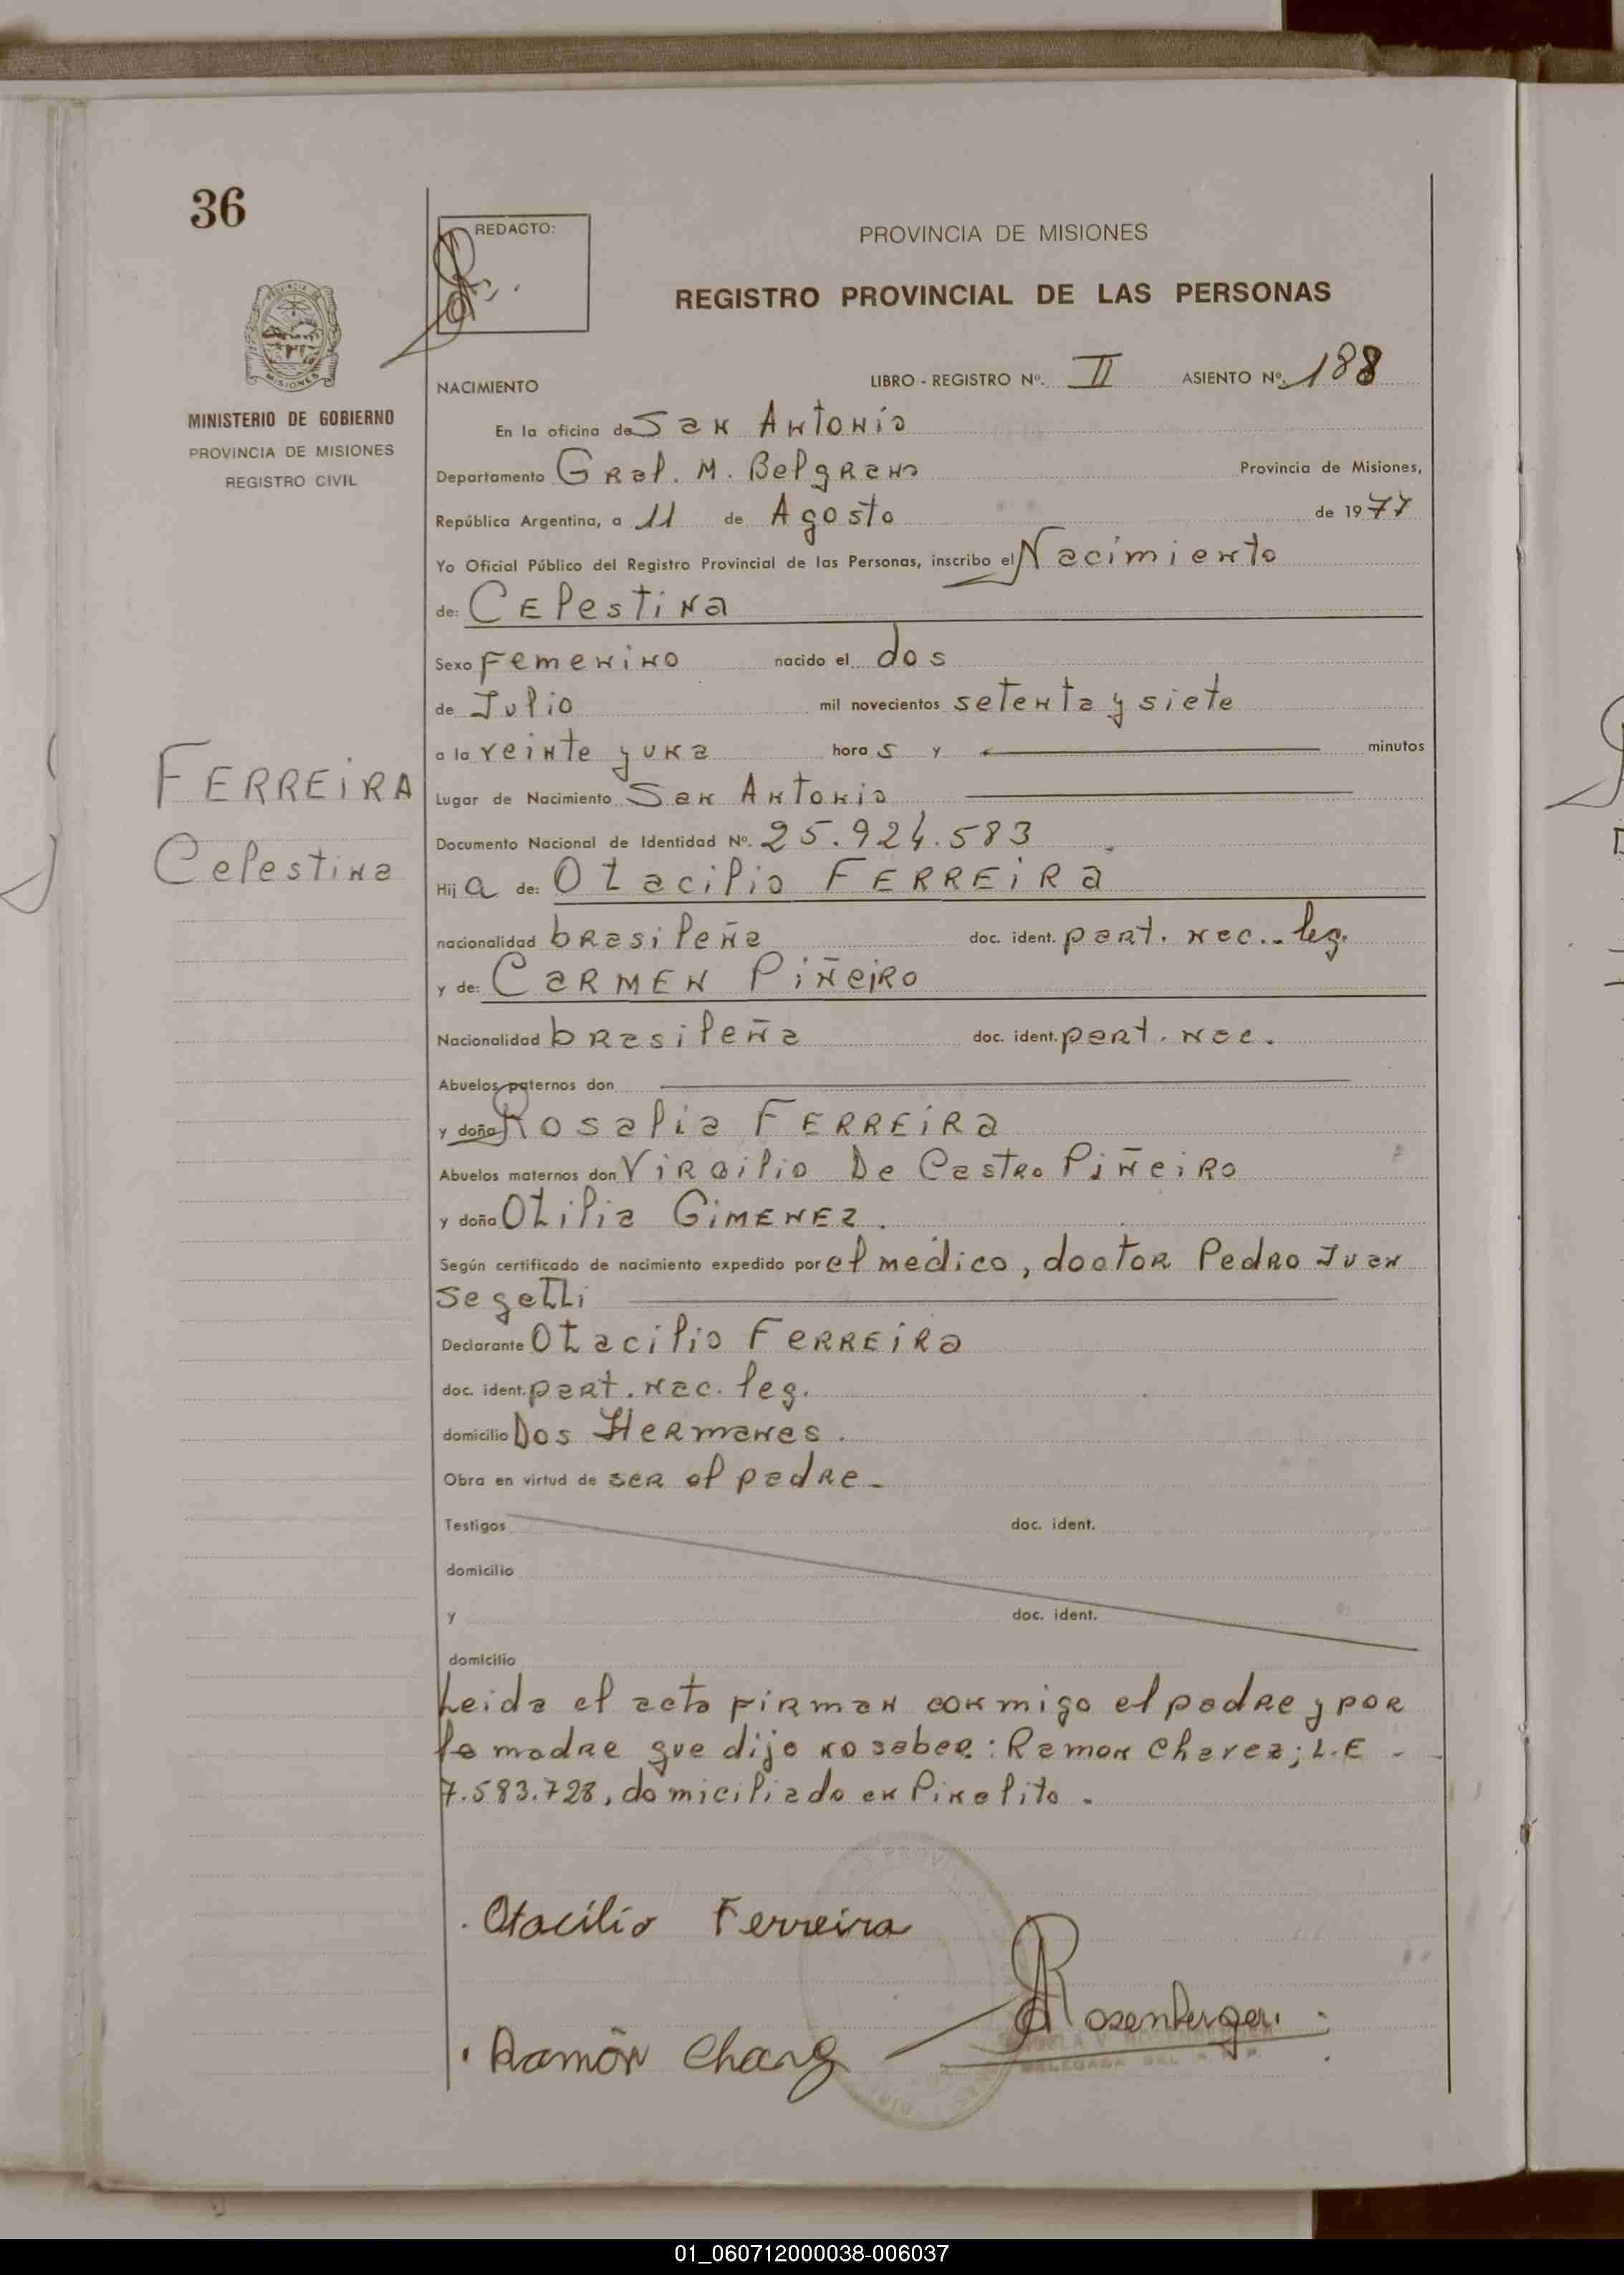 36
REDACTO:
PROVINCIA DE MISIONES
REGISTRO PROVINCIAL DE LAS PERSONAS
MISIONES
MINISTERIO DE GOBIERNO
PROVINCIA DE MISIONES
REGISTRO CIVIL
NACIMIENTO LIBRO - REGISTRO Nº. II ASIENTO Nº. 188
En la oficina de San Antonio
Departamento Gral. M. Belgrano Provincia de Misiones,
República Argentina, a 11 de Agosto de 1977
Yo Oficial Público del Registro Provincial de las Personas, inscribo el Nacimiento
de: Celestina
Sexo femenino nacido el dos
de Julio mil novecientos setenta y siete
a la veinte y una hora s y minutos
FERREIRA
Celestina
Lugar de Nacimiento San Antonio
Documento Nacional de Identidad Nº. 25.924.583
Hij a de: Otacilio FERREIRA
nacionalidad brasileña doc. ident. part. nac. leg.
y de: CARMEN Piñeiro
Nacionalidad brasileña doc. ident. part. nac.
Abuelos paternos don
y doña Rosalia FERREIRA
Abuelos maternos don Virgilio De Castro Piñeiro
y doña Otilia GIMENEZ.
Según certificado de nacimiento expedido por el médico, doctor Pedro Juan
Segetti
Declarante Otacilio FERREIRA
doc. ident. part. nac. leg.
domicilio Dos Hermanas.
Obra en virtud de ser el padre-
Testigos doc. ident.
domicilio
y doc. ident.
domicilio
Leida el acta firman conmigo el padre y por
la madre que dijo no saber: Ramon Chavez; L.E -
7.583.728, domiciliado en Pinalito.
Otacilio Ferreira
Rosenberger.
Ramón
DELEGADA DEL
01_060712000038-006037